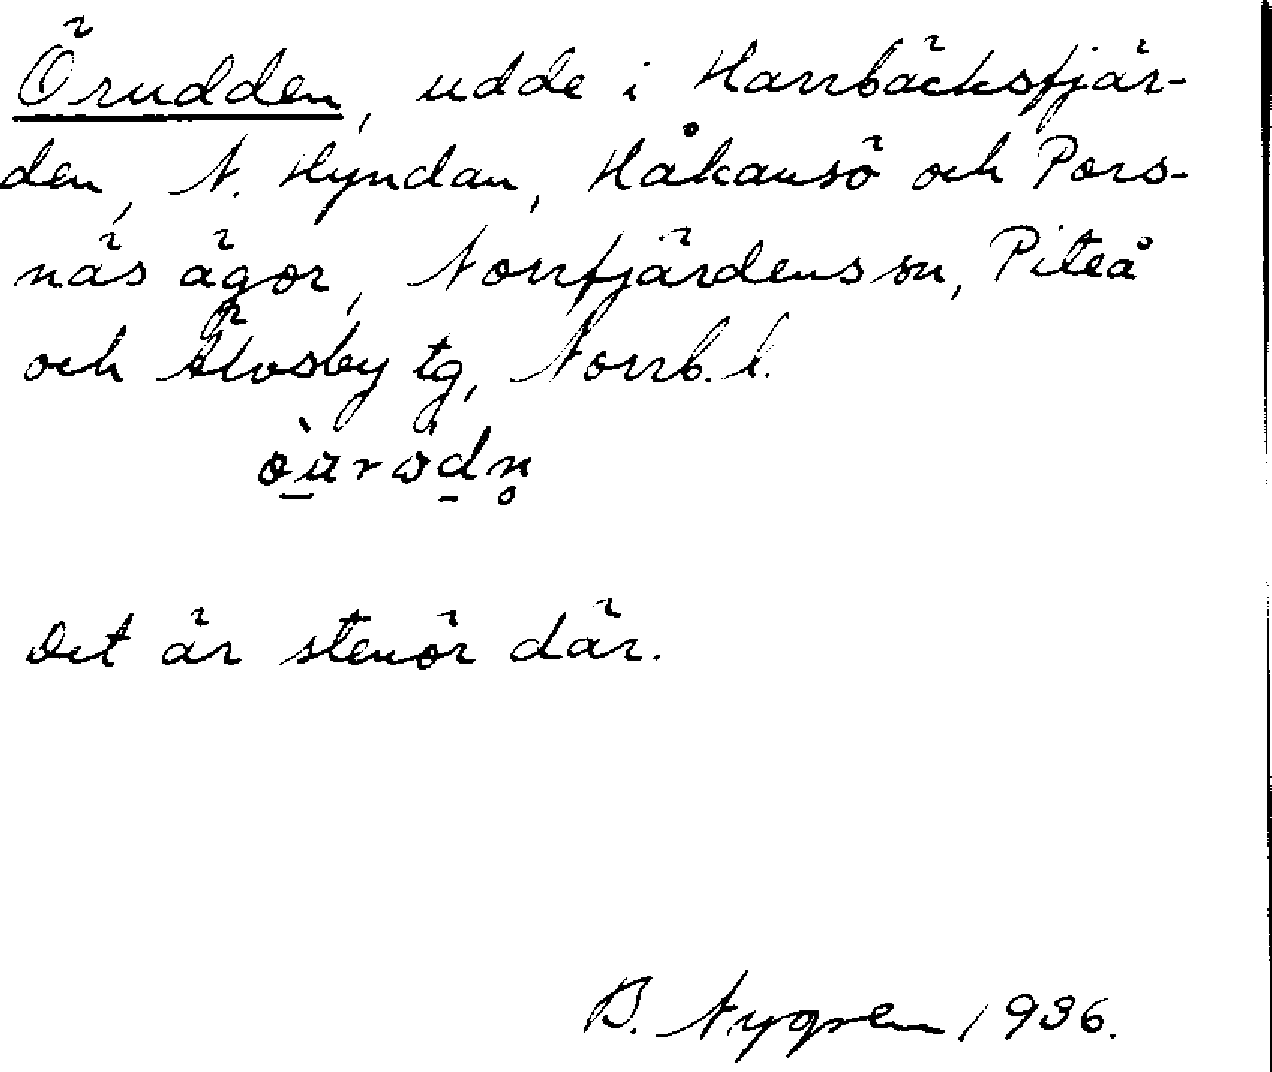 Örudden, udde i Harrbäcksfjär-
den, N. Hyndan, Håkansö och Pors-
näs ägor, Norrfjärdens sn, Piteå
och Älvsby tg, Norrb. l.
Det är stenör där.
B. Nygren 1936.